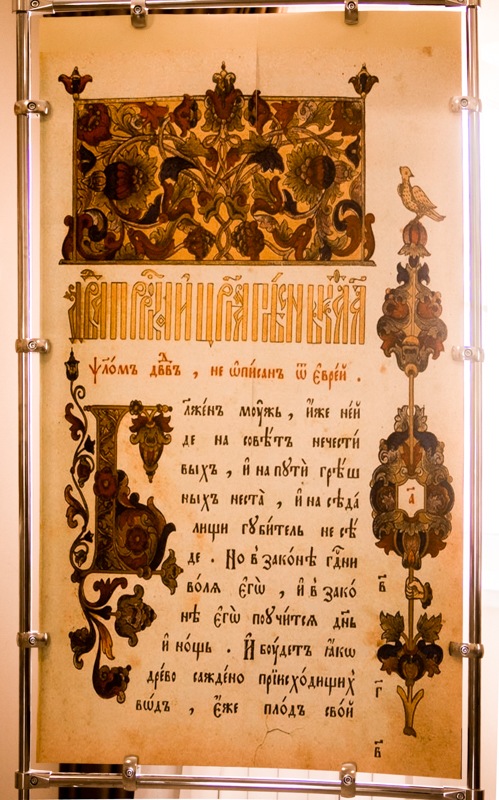 ѱло́мъ дв҃въ , не ѡ҆пи́санъ ѿ є҆вре́й .
Б
лже́нъ мꙋ́жъ , и҆́же не́й
де на совѣ́тъ нечести́
выхъ , и҆ на пꙋтѝ грѣ́ш
ныхъ неста̀ , и҆ на сѣда́
лищи гꙋби́тель не сѣ́
де . Но в̾ зако́нѣ гд҃ни
во́лѧ є҆гѡ̀ , и҆ в̾ зако́
нѣ є҆гѡ̀ поꙋчи́тсѧ дн҃ь
и҆ но́щь . И҆ бꙋ́детъ ꙗ҆́кѡ
дре́во сажде́но при̾исходѧщихъ
во́дъ , є҆́же пло́дъ сво́й
а҃
в҃
г҃